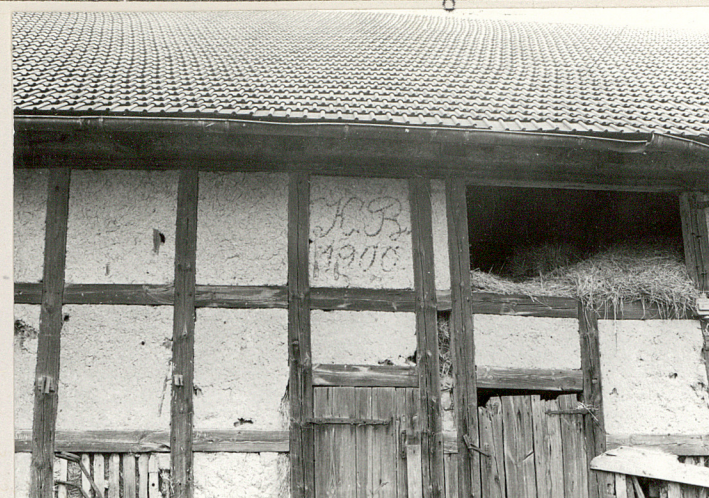 K. B.
1900